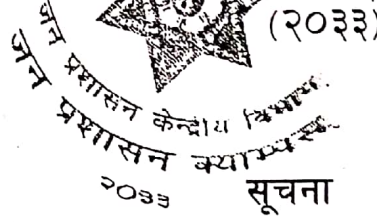 (२०३३)
जन प्रशासन केन्द्रीय विभाग
जन प्रशासन क्याम्पस
२०३३
सूचना